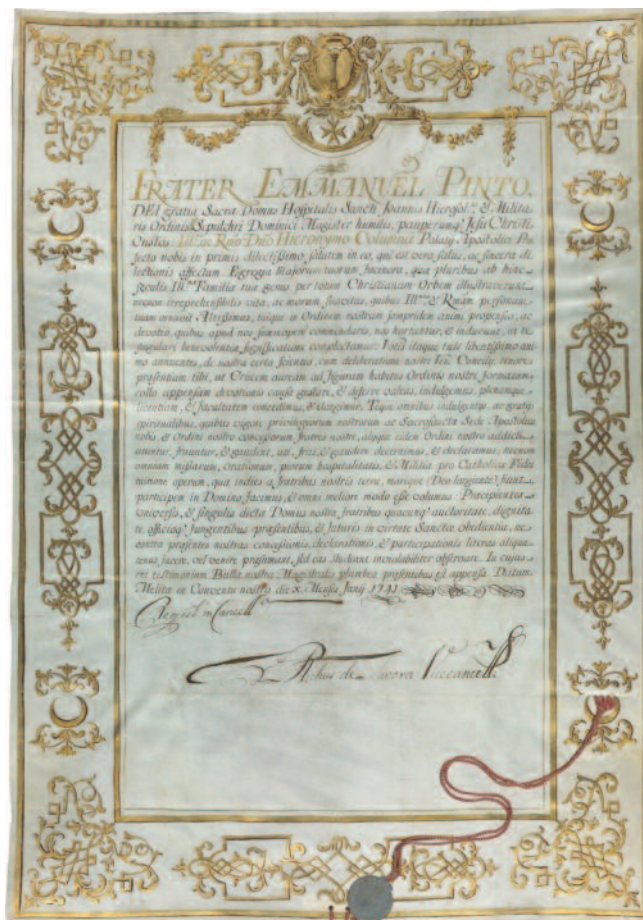 FRATER EMMANUEL PINTO.
DEI gratia Sacra Domus Hospitalis Sancti Joannis Hierosol.ni, & Milita-
ris Ordinis Sepulchri Dominici Magister humilis, pauperumq; Jesu Christi
Custos Ill.mo ac Rmo Dno Hieronymo Columna Palatij Apostolici Pre-
fecto nobis in primis dilectissimo, salutem in eo, qui est vera salus, ac sincera di-
lectionis affectum. Egregia Majorum tuorum facinora, qua pluribus ab hinc
seculis Ill.ma Familia tua genus per totum Christianum Orbem illustraverunt
necnon irreprehensibilis vita, ac morum suavitas, quibus Ill.mam & Rmam personam
tuam ornavit Altissimus, tuique in Ordinem nostrum jampridem animi propensio, ac
devotio, quibus apud nos summopere commendaris, nos hortantur, & inducunt, ut te
singulari benevolentia significatione complectamur. Votis itaque tuis libentissimo ani-
mo annuentes, de nostra certa scientia, cum deliberatione nostri Ven. Concilij, tenore
presentium tibi, ut Crucem auream ad figuram habitus Ordinis nostri formatam
collo appensam devotionis causa gestare, & deferre valeas, indulgemus, plenamque
licentiam, & facultatem concedimus, & elargimur. Teque omnibus indulgentijs, ac gratijs
spiritualibus, quibus vigore privilegiorum nostrorum ac Sacrosancta Sede Apostolica
nobis & Ordini nostro concessorum fratres nostri, alijque eidem Ordini nostro addicti
utuntur, fruuntur, & gaudent, uti, frui, & gaudere decernimus, & declaramus; necnon
omnium missarum, Orationum, piorum hospitalitatis, & Militia pro Catholica Fidei
tuitione operum, qua indies a fratribus nostris terra, marique (Deo largiente) fiunt
participem in Domino facimus, & omni meliori modo esse volumus. Precipientes
universis, & singulis dicta Domus nostra fratribus quacunq; auctoritate, dignita-
te, officioq; fungentibus presentibus, & futuris in virtute Sancta obedientia, ne
contra presentes nostras concessionis, declarationis, & participationis literas aliqua-
tenus facere, vel venire presumant, sed eas studeant inviolabiliter observare. In cujus
rei testimonium Bulla nostra Magistralis plumbea presentibus est appensa. Datum
Melita in Conventu nostro die X. Mensis Junij 1743
in Cancell.a
de Tavora Vicecancell.s